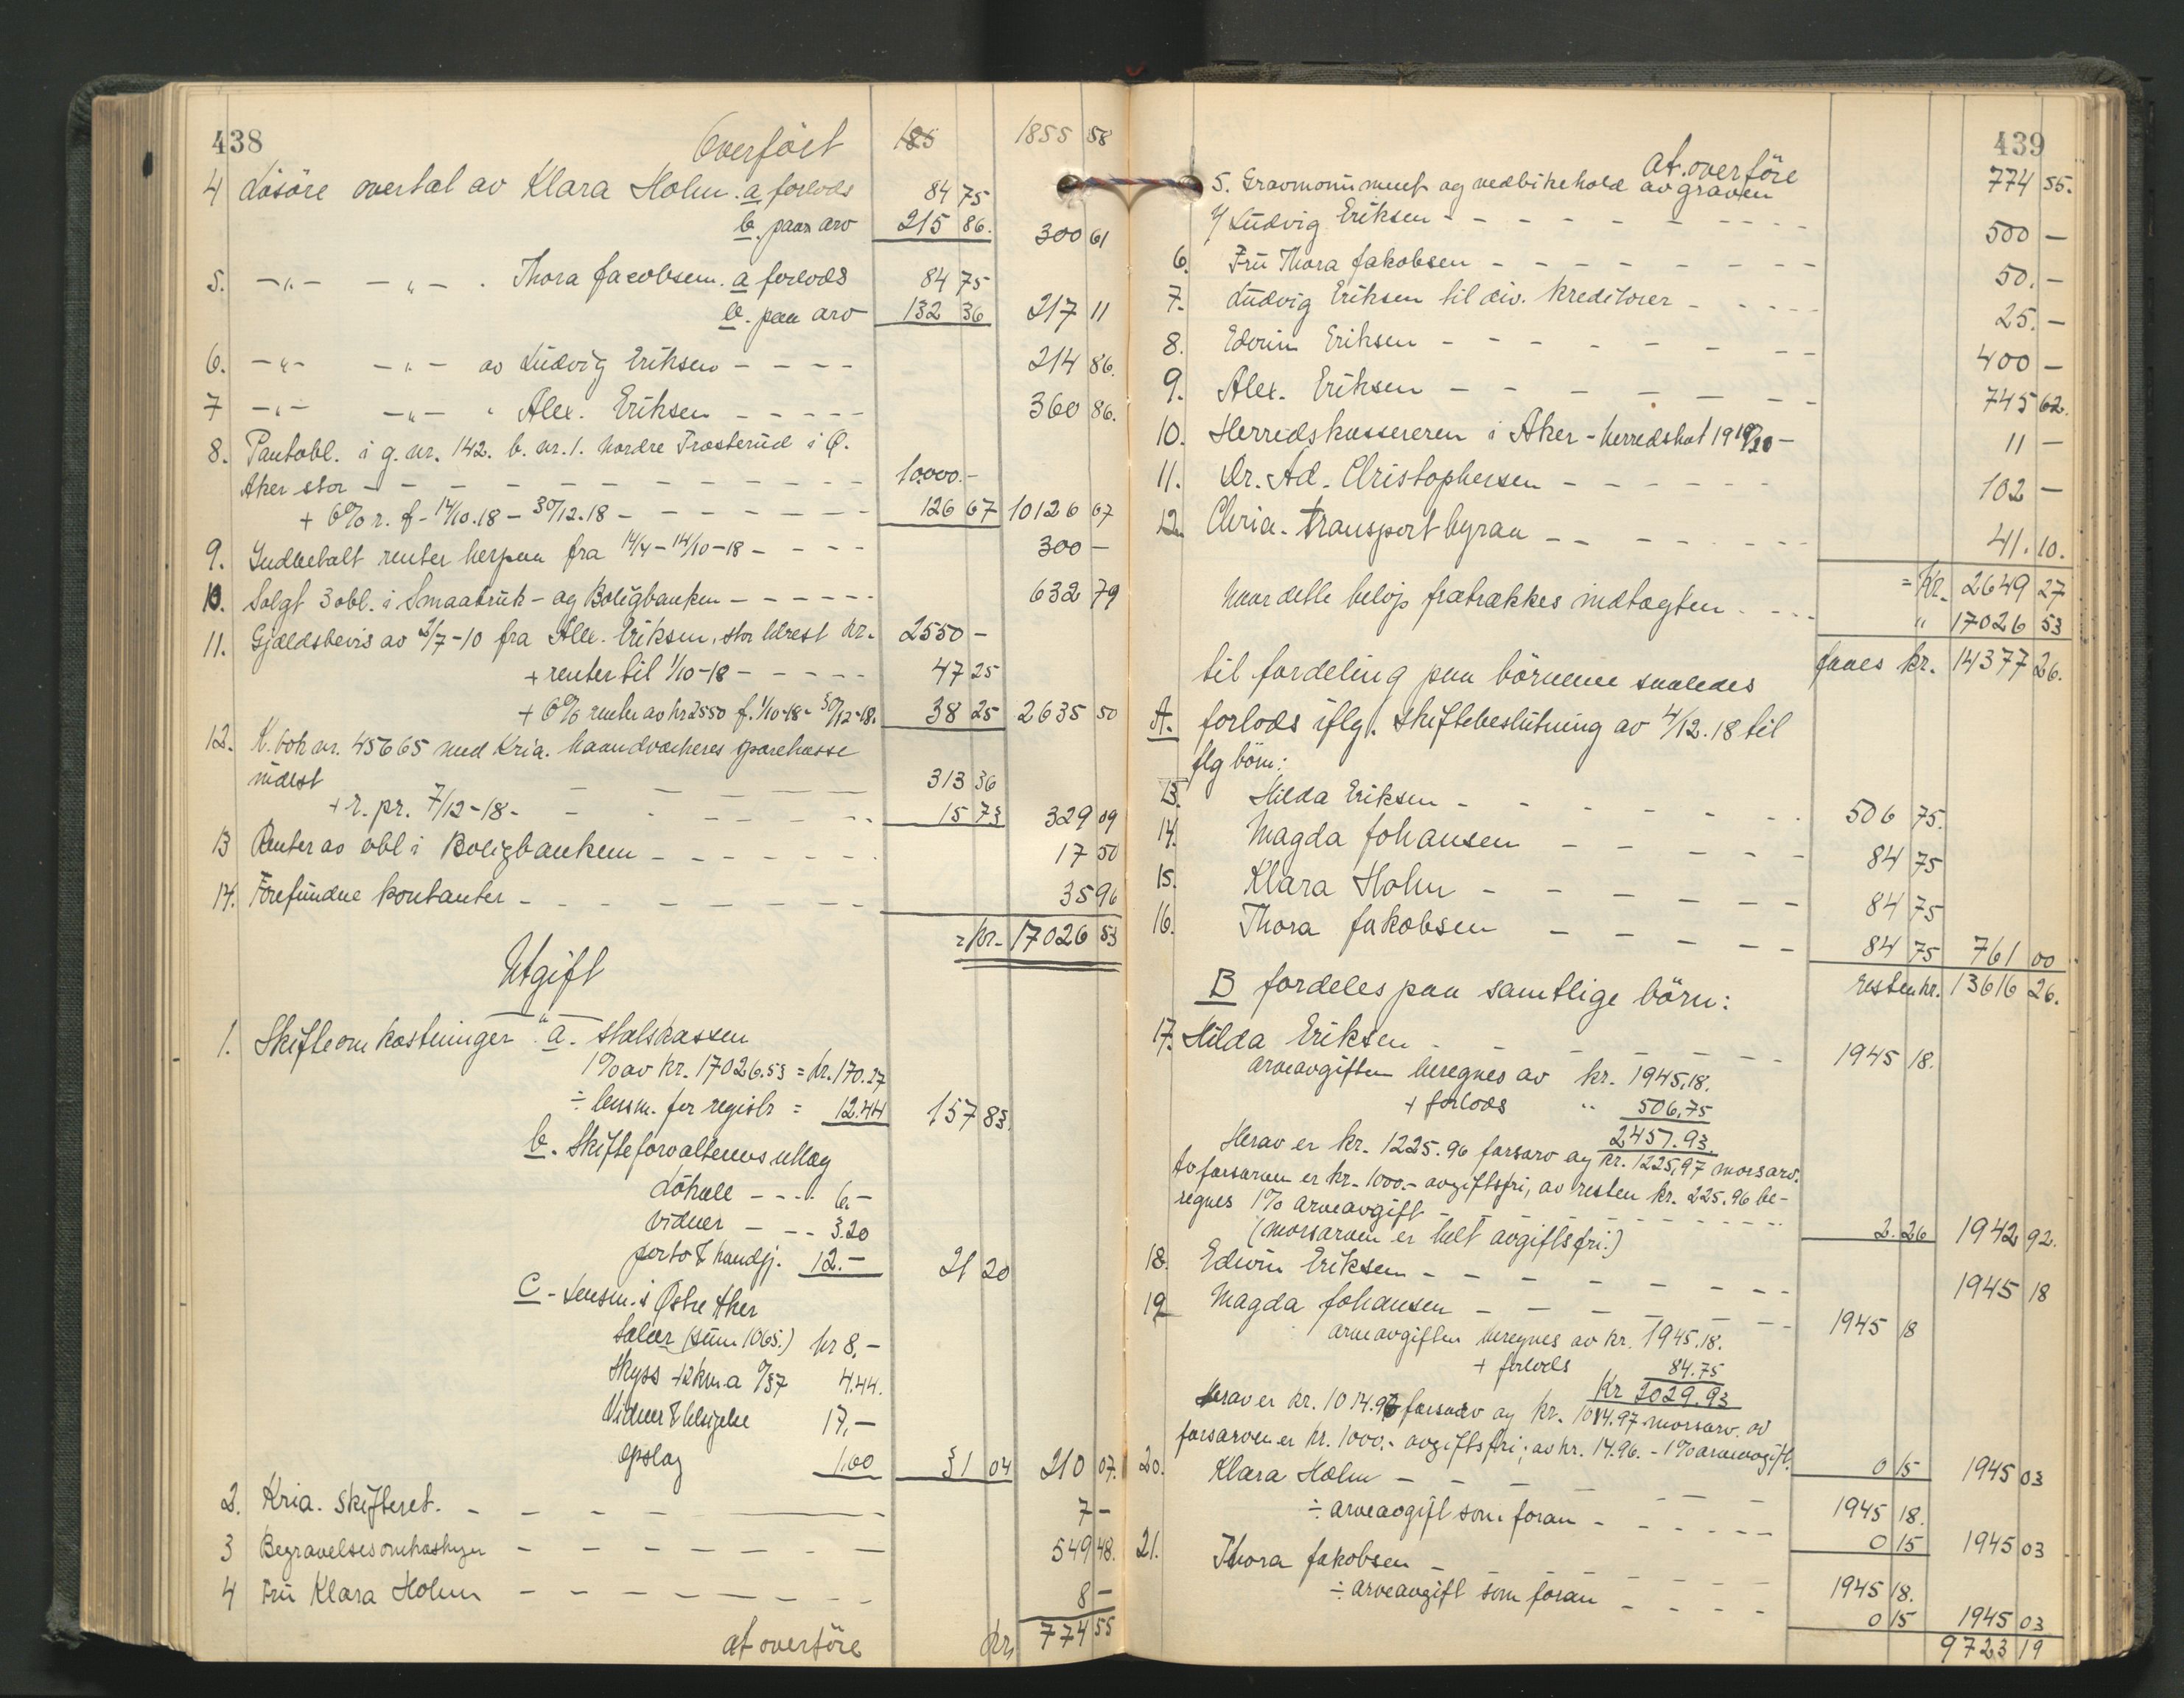 438
Overført 185 1855 58
4 Løsöre overtat av Klara Holm. a forlods 84 75
b. paa arv 215 86. 300 61
5. -"- -"- . Thora Jacobsen. a forlods 84 75
b. paa arv 132 36 217 11
6. -"- -"- av Ludvig Eriksen - - - - 214 86.
7 -"- -"- " Alex. Eriksen - - - - - 360 86.
8. Pantobl. i g. nr. 142. b. nr. 1. nordre Trosterud i Ø.
Aker stor - - - - - - - - - - 10000.-
+ 6% r. f - 14/10.18 - 30/12.18 - - - - - - - 126 67 10126 67
9. Indbetalt renter herpaa fra 14/4 - 14/10 - 18 - - - - 300 -
10. Solgt 3 obl. i Smaabruk- og Boligbanken - - - - - - 632 79
11. Gjældsbevis av 2/7-10 fra Alex. Eriksen, stor tilrest kr. 2550 -
+ renter til 1/10-18 - - - - - 47 25
+ 6% renter av kr 2550 f. 1/10-18 - 30/12-18. 38 25 2635 50
12. K. bok nr. 45665 med Kria. haandverkeres sparekasse
indest - - - - 313 36
+ r. pr. 7/12-18 - - - - - - - 15 73 329 09
13 Renter av obl i Boligbanken - - - - - - - 17 50
14. Forefundne kontanter - - - - - - - - 35 96
= kr. 17026 53
Utgift
1. Skifteomkostninger a. statskassen
1% av kr. 17026.53 = kr. 170.27
÷ lensm. for registr = 12.44 157 83.
b. Skifteforvalterens utlæg
Lokale - - - - 6.-
vidner - - - 3.20
porto & haandgj. 12.- 21 20
C - Lensm. i Østre Aker
Salær (sum 1065.) kr 8.-
Skyss 12 km a 0/37 4.44.
Vidner & tilsigelse 17,-
opslag 1.60 31 04 210 07.
2. Kria. skifteret. - - - - - 7 -
3 Begravelsesomkostnger - - - - - - - - 549 48.
4 Fru Klara Holm - - - - - - - - 8 -
at overföre kr. 774 55
439
at overföre 774 55.
5. Gravmonument og vedlikehold av graven
v/ Ludvig Eriksen - - - - - - - - - 500 -
6. Fru Thora Jakobsen - - - - - - - - 50. -
7. Ludvig Eriksen til div. kreditorer - - - - 25. -
8. Edvin Eriksen - - - - - - - - 400 -
9. Alex. Eriksen - - - - - - - 745 62.
10. Herredskassereren i Aker - herredskat 1919/20 - 11 -
11. Dr. Ad. Christophersen - - - - - - 102 -
12. Chria. transportbyraa - - - - - - 41. 10.
= Kr. 2649 27
Naar dette belöp fratrækkes indtægten - - - " 17026 53
faaes kr. 14377 26.
til fordeling paa börnene saaledes
A. forlods iflg. skiftebeslutning av 4/12.18 til
flg börn:
13. Hilda Eriksen - - - - - - - 506 75.
14. Magda Johansen - - - - - - 84 75
15. Klara Holm - - - - - - - 84 75
16. Thora Jakobsen - - - - - 84 75 761 00
resten kr. 13616 26.
B fordeles paa samtlige börn:
17. Hilda Eriksen - - - - - - - 1945 18.
arveavgiften beregnes av kr. 1945.18.
+ forlods " 506.75
2457.93.
Herav er kr. 1225.96 farsarv og kr. 1225,97 morsarv.
Av farsarven er kr. 1000.- avgiftsfri, av resten kr. 225.96 be-
regnes 1% arveavgift - - - - - - - - - 2.26 1942 92.
(morsarven er helt avgiftsfri.)
18. Edvin Eriksen - - - - - - - - 1945 18
19 Magda Johansen - - - - - - - 1945 18
arveavgiften beregnes av kr. 1945.18.
+ forlods 84.75
Kr 2029.93
Herav er kr. 1014.96 farsarv og kr. 1014.97 morsarv. av
farsarven er kr. 1000.- avgiftsfri; av kr. 14.96. - 1% arveavgift. 0 15 1945 03
20. Klara Holm - - - - - - 1945 18.
÷ arveavgift som foran - - - - - - 0 15 1945 03
21. Thora Jakobsen - - - - - - - 1945 18.
÷ arveavgift som foran - - - - 0 15 1945 03
9723 19